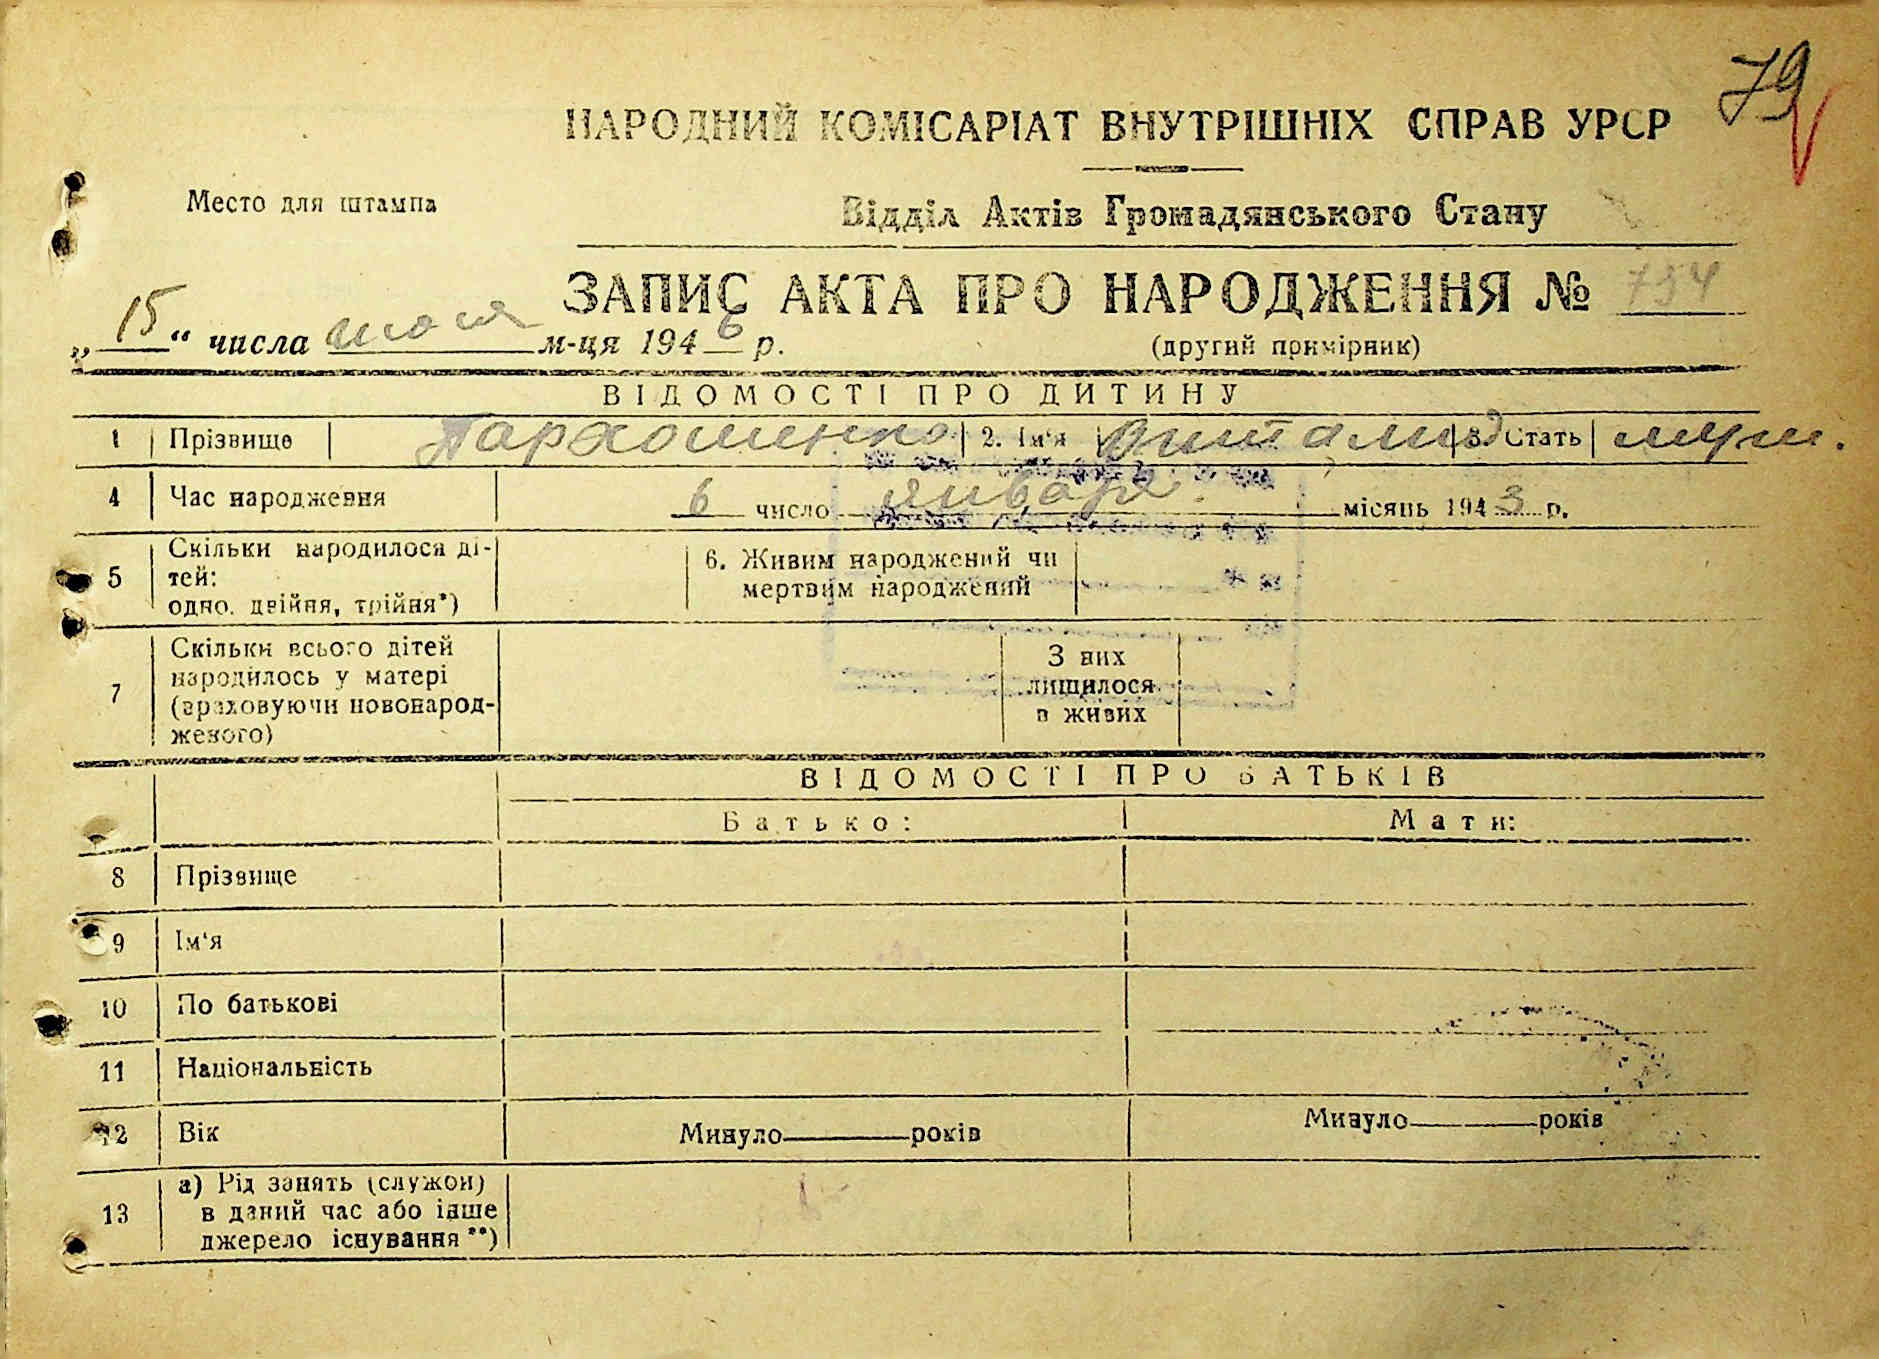 79
НАРОДНИЙ КОМІСАРІАТ ВНУТРІШНІХ СПРАВ УРСР
Место для штампа
Відділ Актів Громадянського Стану
ЗАПИС АКТА ПРО НАРОДЖЕННЯ № 754
„15“ числа июля м-ця 1946 р.
(другий примірник)
ВІДОМОСТІ ПРО ДИТИНУ
1 Прізвище Пархоменко 2. Ім‘я Виталий 3. Стать муж.
4 Час народження 6 число января місяць 1943 р.
5 Скільки народилося ді-
тей:
одно, двійня, трійня*)
6. Живим народжений чи
мертвим народжений
7 Скільки всього дітей
народилось у матері
(враховуючи новонарод-
женого)
З них
лишилося
в живих
ВІДОМОСТІ ПРО БАТЬКІВ
Батько: Мати:
8 Прізвище
9 Ім‘я
10 По батькові
11 Національність
12 Вік Минуло ——— років Минуло ——— років
13 а) Рід занять (служби)
в даний час або інше
джерело існування**)